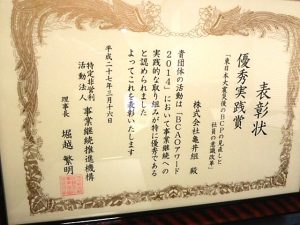 表彰状
優秀実践賞
「東日本大震災後のBCPの見直しと
社員の意識改革」
株式会社亀井組 殿
貴団体の活動は「BCAOアワード
2014」において事業継続への
実践的な取り組みが特に優秀である
と認められました
よってこれを表彰いたします
平成二十七年三月十六日
特定非営利
活動法人 事業継続推進機構
理事長 堀越 繁明